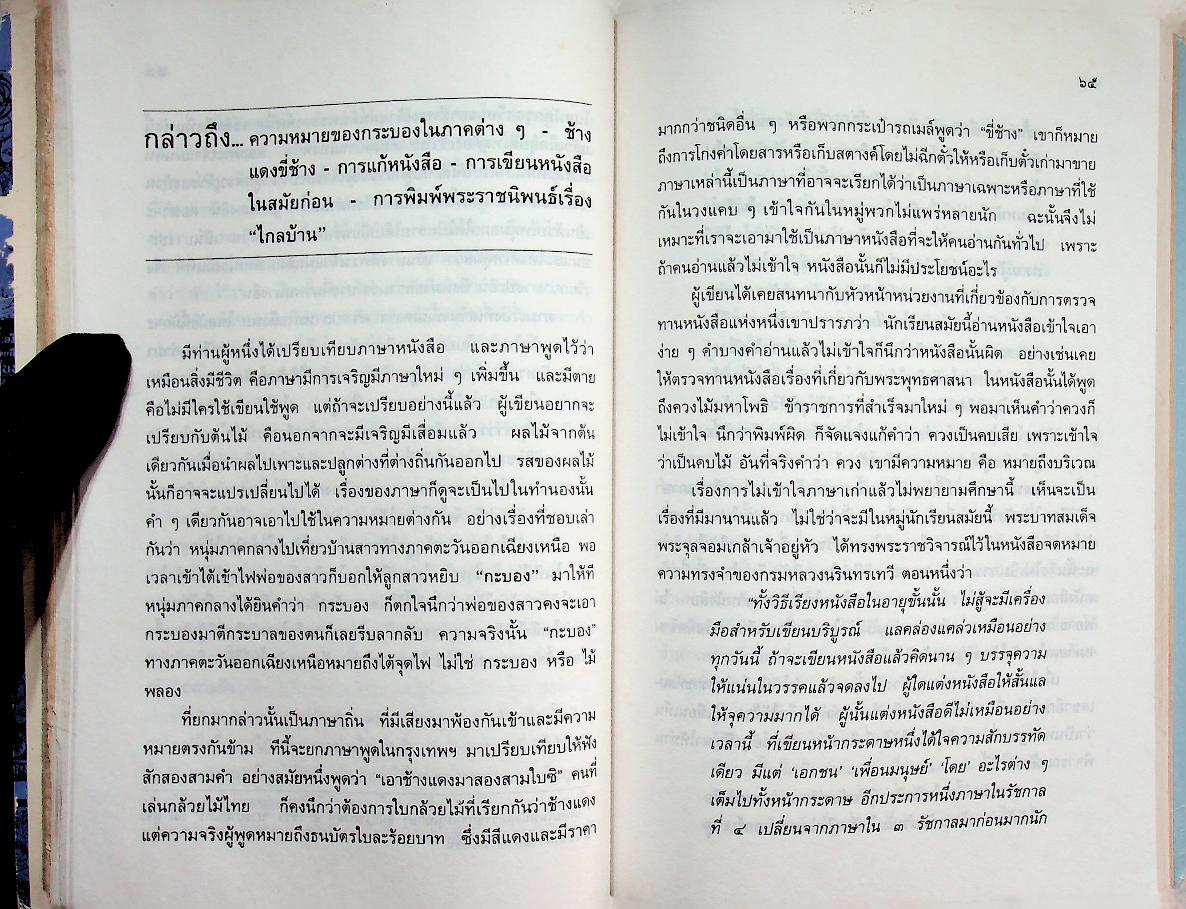 กล่าวถึง... ความหมายของกระบองในภาคต่าง ๆ - ช้าง
แดงขี่ช้าง - การแก้หนังสือ - การเขียนหนังสือ
ในสมัยก่อน - การพิมพ์พระราชนิพนธ์เรื่อง
“ไกลบ้าน”
มีท่านผู้หนึ่งได้เปรียบเทียบภาษาหนังสือ และภาษาพูดไว้ว่า
เหมือนสิ่งมีชีวิต คือภาษามีการเจริญมีภาษาใหม่ ๆ เพิ่มขึ้น และมีตาย
คือไม่มีใครใช้เขียนใช้พูด แต่ถ้าจะเปรียบอย่างนี้แล้ว ผู้เขียนอยากจะ
เปรียบกับต้นไม้ คือนอกจากจะมีเจริญมีเสื่อมแล้ว ผลไม้จากต้น
เดียวกันเมื่อนำผลไปเพาะและปลูกต่างที่ต่างถิ่นกันออกไป รสของผลไม้
นั้นก็อาจจะแปรเปลี่ยนไปได้ เรื่องของภาษาก็ดูจะเป็นไปในทำนองนั้น
คำ ๆ เดียวกันอาจเอาไปใช้ในความหมายต่างกัน อย่างเรื่องที่ชอบเล่า
กันว่า หนุ่มภาคกลางไปเที่ยวบ้านสาวทางภาคตะวันออกเฉียงเหนือ พอ
เวลาเข้าใต้เข้าไฟพ่อของสาวก็บอกให้ลูกสาวหยิบ “กะบอง” มาให้ที
หนุ่มภาคกลางได้ยินคำว่า กระบอง ก็ตกใจนึกว่าพ่อของสาวคงจะเอา
กระบองมาตีกระบาลของตนก็เลยรีบลากลับ ความจริงนั้น “กะบอง”
ทางภาคตะวันออกเฉียงเหนือหมายถึงใต้จุดไฟ ไม่ใช่ กระบอง หรือ ไม้
พลอง
ที่ยกมากล่าวนั้นเป็นภาษาถิ่น ที่มีเสียงมาพ้องกันเข้าและมีความ
หมายตรงกันข้าม ทีนี้จะยกภาษาพูดในกรุงเทพฯ มาเปรียบเทียบให้ฟัง
สักสองสามคำ อย่างสมัยหนึ่งพูดว่า “เอาช้างแดงมาสองสามใบซิ” คนที่
เล่นกล้วยไม้ไทย ก็คงนึกว่าต้องการใบกล้วยไม้ที่เรียกกันว่าช้างแดง
แต่ความจริงผู้พูดหมายถึงธนบัตรใบละร้อยบาท ซึ่งมีสีแดงและมีราคา
๖๕
มากกว่าชนิดอื่น ๆ หรือพวกกระเป๋ารถเมล์พูดว่า “ขี่ช้าง” เขาก็หมาย
ถึงการโกงค่าโดยสารหรือเก็บสตางค์โดยไม่ฉีกตั๋วให้หรือเก็บตั๋วเก่ามาขาย
ภาษาเหล่านี้เป็นภาษาที่อาจจะเรียกได้ว่าเป็นภาษาเฉพาะหรือภาษาที่ใช้
กันในวงแคบ ๆ เข้าใจกันในหมู่พวกไม่แพร่หลายนัก ฉะนั้นจึงไม่
เหมาะที่เราจะเอามาใช้เป็นภาษาหนังสือที่จะให้คนอ่านกันทั่วไป เพราะ
ถ้าคนอ่านแล้วไม่เข้าใจ หนังสือนั้นก็ไม่มีประโยชน์อะไร
ผู้เขียนได้เคยสนทนากับหัวหน้าหน่วยงานที่เกี่ยวข้องกับการตรวจ
ทานหนังสือแห่งหนึ่งเขาปรารภว่า นักเรียนสมัยนี้อ่านหนังสือเข้าใจเอา
ง่าย ๆ คำบางคำอ่านแล้วไม่เข้าใจก็นึกว่าหนังสือนั้นผิด อย่างเช่นเคย
ให้ตรวจทานหนังสือเรื่องที่เกี่ยวกับพระพุทธศาสนา ในหนังสือนั้นได้พูด
ถึงควงไม้มหาโพธิ ข้าราชการที่สำเร็จมาใหม่ ๆ พอมาเห็นคำว่าควงก็
ไม่เข้าใจ นึกว่าพิมพ์ผิด ก็จัดแจงแก้คำว่า ควงเป็นคบเสีย เพราะเข้าใจ
ว่าเป็นคบไม้ อันที่จริงคำว่า ควง เขามีความหมาย คือ หมายถึงบริเวณ
เรื่องการไม่เข้าใจภาษาเก่าแล้วไม่พยายามศึกษานี้ เห็นจะเป็น
เรื่องที่มีมานานแล้ว ไม่ใช่ว่าจะมีในหมู่นักเรียนสมัยนี้ พระบาทสมเด็จ
พระจุลจอมเกล้าเจ้าอยู่หัว ได้ทรงพระราชวิจารณ์ไว้ในหนังสือจดหมาย
ความทรงจำของกรมหลวงนรินทรเทวี ตอนหนึ่งว่า
“ทั้งวิธีเรียงหนังสือในอายุชั้นนั้น ไม่สู้จะมีเครื่อง
มือสำหรับเขียนบริบูรณ์ แลคล่องแคล่วเหมือนอย่าง
ทุกวันนี้ ถ้าจะเขียนหนังสือแล้วคิดนาน ๆ บรรจุความ
ให้แน่นในวรรคแล้วจดลงไป ผู้ใดแต่งหนังสือให้สั้นแล
ให้จุความมากได้ ผู้นั้นแต่งหนังสือดีไม่เหมือนอย่าง
เวลานี้ ที่เขียนหน้ากระดาษหนึ่งได้ใจความสักบรรทัด
เดียว มีแต่ ‘เอกชน’ ‘เพื่อนมนุษย์’ ‘โดย’ อะไรต่าง ๆ
เต็มไปทั้งหน้ากระดาษ อีกประการหนึ่งภาษาในรัชกาล
ที่ ๔ เปลี่ยนจากภาษาใน ๓ รัชกาลมาก่อนมากนัก